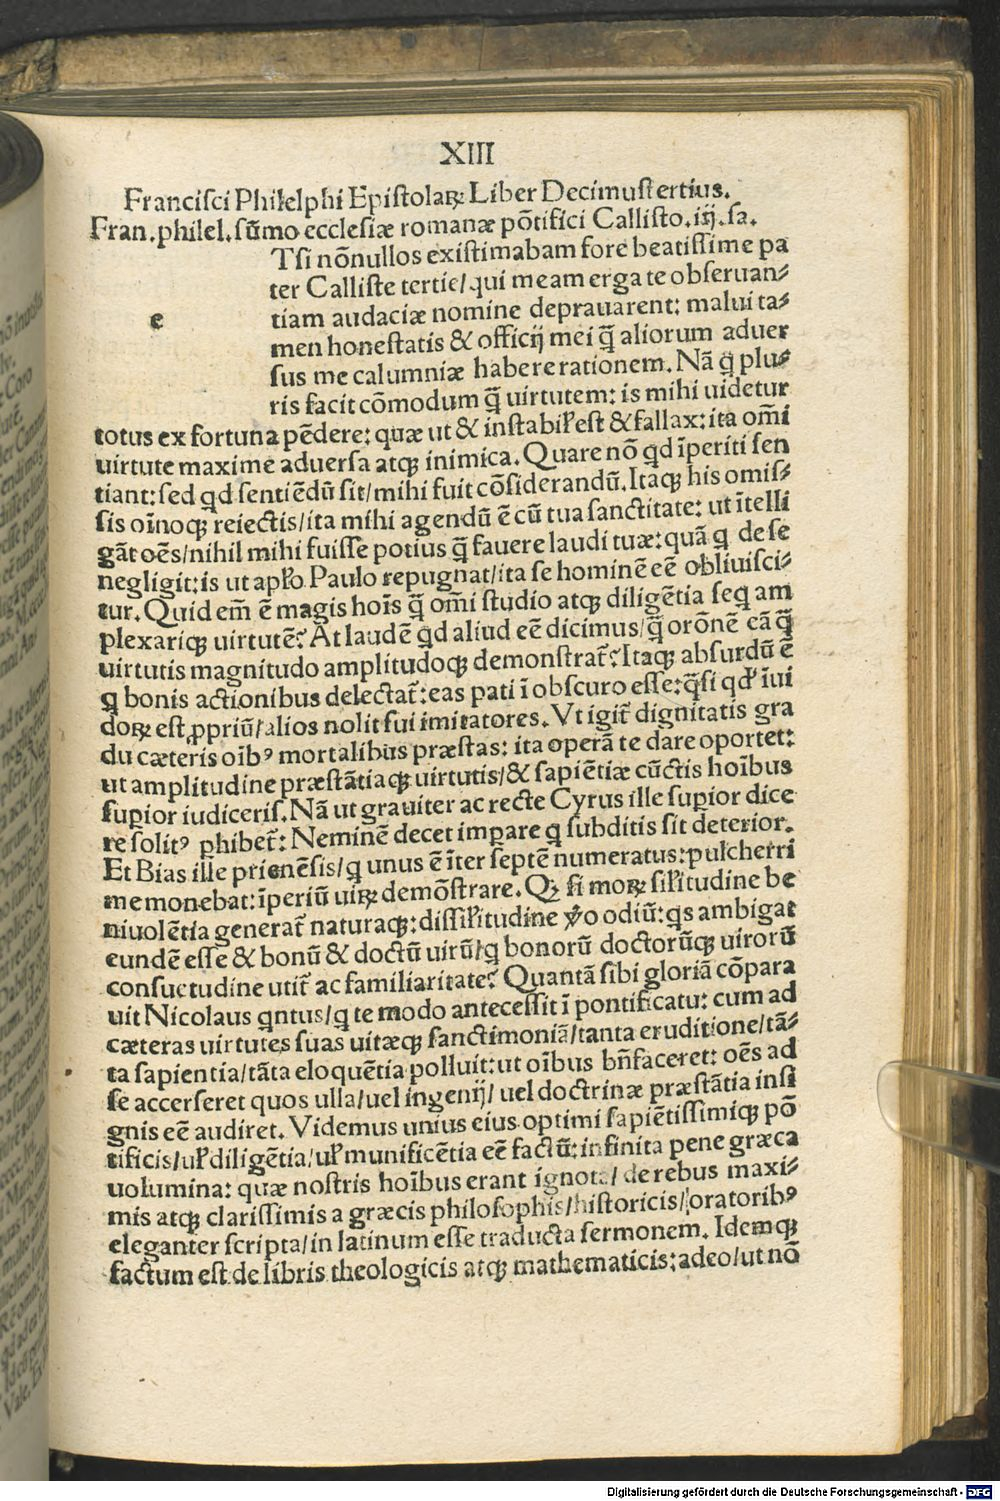 XIII
Franciſci Philelphi Epiſtolaꝝ Liber Decimuſtertius.
Fran.philel.ſūmo eccleſiæ romanæ pōtifici Calliſto.iij.ſa.
e
Tſi nōnullos exiſtimabam fore beatiſſime pa
ter Calliſte tertie/qui meam erga te obſeruan⸗
tiam audaciæ nomine deprauarent: malui ta⸗
men honeſtatis & officij mei q̄ aliorum aduer
ſus me calumniæ habere rationem. Nā q̇ plu⸗
ris facit cōmodum q̄ uirtutem: is mihi uidetur
totus ex fortuna pēdere: quæ ut & inſtabil̓ eſt & fallax: ita om̄i
uirtute maxime aduerſa atqꝫ inimica. Quare nō qd īperiti ſen
tiant: ſed qd ſentiēdū ſit/mihi fuit cōſiderandū. Itaqꝫ his omiſ⸗
ſis oīnoqꝫ reiectis/ita mihi agendū ē cū tua ſanctitate: ut ītelli
gāt oēs/nihil mihi fuiſſe potius q̄ fauere laudi tuæ: quā q̇ de ſe
negligit: is ut apl̓o Paulo repugnat/ita ſe hominē eē obliuiſci⸗
tur. Quid em̄ ē magis hoīs q̄ om̄i ſtudio atqꝫ diligētia ſeq̇ am
plexariqꝫ uirtutē? At laudē qd aliud eē dicimus/q̄ orōnē eā q̄
uirtutis magnitudo amplitudoqꝫ demonſtrat̄? Itaqꝫ abſurdū ē
q̇ bonis actionibus delectat̄: eas pati ī obſcuro eſſe: q̄ſi qd̓ īui
doꝝ eſt ꝓpriū/alios nolit ſui imitatores. Vt igit̄ dignitatis gra
du cæteris oībꝰ mortalibus præſtas: ita operā te dare oportet:
ut amplitudine præſtātiaqꝫ uirtutis/& ſapiētiæ cūctis hoībus
ſupior iudiceriſ. Nā ut grauiter ac recte Cyrus ille ſupior dice
re ſolitꝰ phibet̄: Neminē decet impare q̇ ſubditis ſit deterior.
Et Bias ille prienēſis/q̇ unus ē īter ſeptē numeratus: pulcherri
me monebat: īperiū uiꝝ demōſtrare. Qꝫ ſi moꝝ ſil̓itudine be
niuolētia generat̄ naturaqꝫ: diſſil̓itudine ꝟo odiū: q̇s ambigat
eundē eſſe & bonū & doctū uirū/q̇ bonorū doctorūqꝫ uirorū
conſuetudine utit̄ ac familiaritate? Quantā ſibi gloriā cōpara
uit Nicolaus qntus/q̇ te modo anteceſſit ī pontificatu: cum ad
cæteras uirtutes ſuas uitæqꝫ ſanctimoniā/tanta eruditione/tā⸗
ta ſapientia/tāta eloquētia polluit: ut oībus bn̄faceret: oēs ad
ſe accerſeret quos ulla/uel ingenij/ uel doctrinæ præſtātia inſi
gnis eē audiret. Videmus unius eius optimi ſapiētiſſimiqꝫ pō
tificis/ul̓ diligētia/ul̓ munificētia eē factū: infinita pene græca
uolumina: quæ noſtris hoībus erant ignota/ de rebus maxi⸗
mis atqꝫ clariſſimis a græcis philoſophis/hiſtoricis/oratoribꝰ
eleganter ſcripta/in latinum eſſe traducta ſermonem. Idemqꝫ
factum eſt de libris theologicis atqꝫ mathematicis: adeo/ut nō
Digitalisierung gefördert durch die Deutsche Forschungsgemeinschaft - DFG